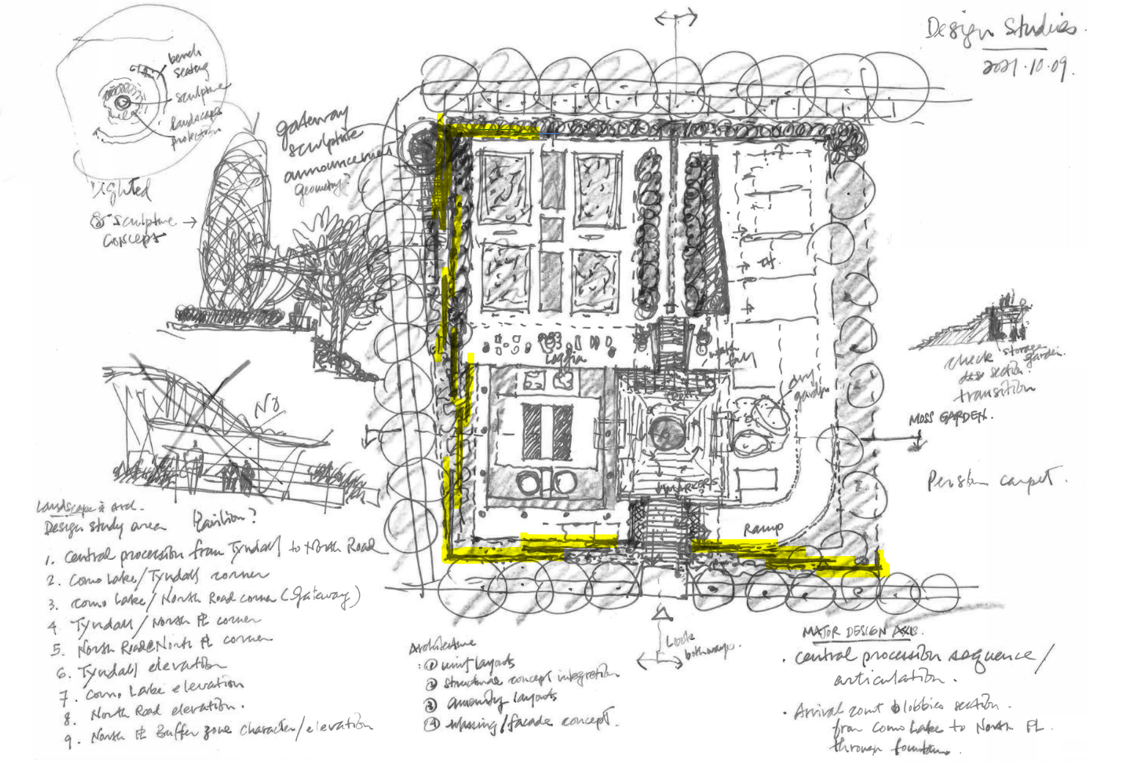 Design Studies.
2021.10.09.
bench
seating
sculpture
landscape
protection
lighted
sculpture →
concept
gateway
sculpture
announcement
Geometry?
No
Pavilion?
Landscape & arch.
Design study area
1. Central procession from Tyndall to North Road
2. Como Lake/Tyndall corner
3. Como Lake/North Road corner (Gateway)
4. Tyndall/North PL corner
5. North Road@North PL corner
6. Tyndall elevation
7. Como Lake elevation
8. North Road elevation.
9. North PL Buffer zone character/elevation
Architecture
① unit layouts
② structure concept integration
③ amenity layouts
④ massing/facade concept.
water
fall
dry
garden
Ramp
Look
both ways.
check storage garden.
section
transition
MOSS GARDEN.
Persian carpet.
MAJOR DESIGN AXIS.
• central procession sequence/
articulation.
• Arrival court & lobbies section.
from Como Lake to North PL.
through fountain.